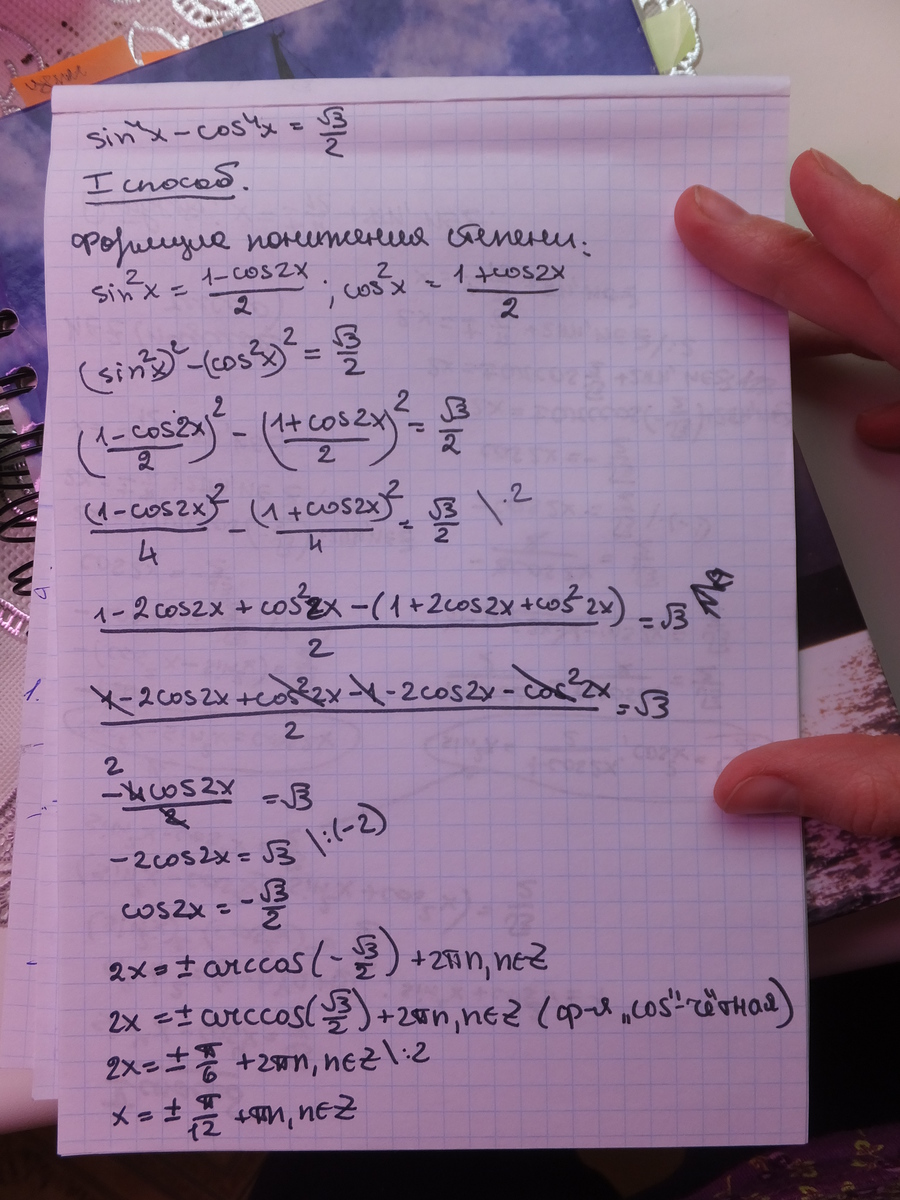 sin⁴x − cos⁴x = √3/2
I способ.
Формула понижения степени:
sin²x = (1−cos2x)/2 ; cos²x = (1+cos2x)/2
(sin²x)² − (cos²x)² = √3/2
((1−cos2x)/2)² − ((1+cos2x)/2)² = √3/2
(1−cos2x)²/4 − (1+cos2x)²/4 = √3/2 \·2
(1−2cos2x+cos²2x−(1+2cos2x+cos²2x))/2 = √3
(1−2cos2x+cos²2x−1−2cos2x−cos²2x)/2 = √3
2
−4cos2x/2 = √3
−2cos2x = √3 \:(−2)
cos2x = −√3/2
2x = ± arccos(−√3/2) + 2πn, n∈Z
2x = ± arccos(√3/2) + 2πn, n∈Z (ф-я „cos"- чётная)
2x = ± π/6 + 2πn, n∈Z \:2
x = ± π/12 + πn, n∈Z